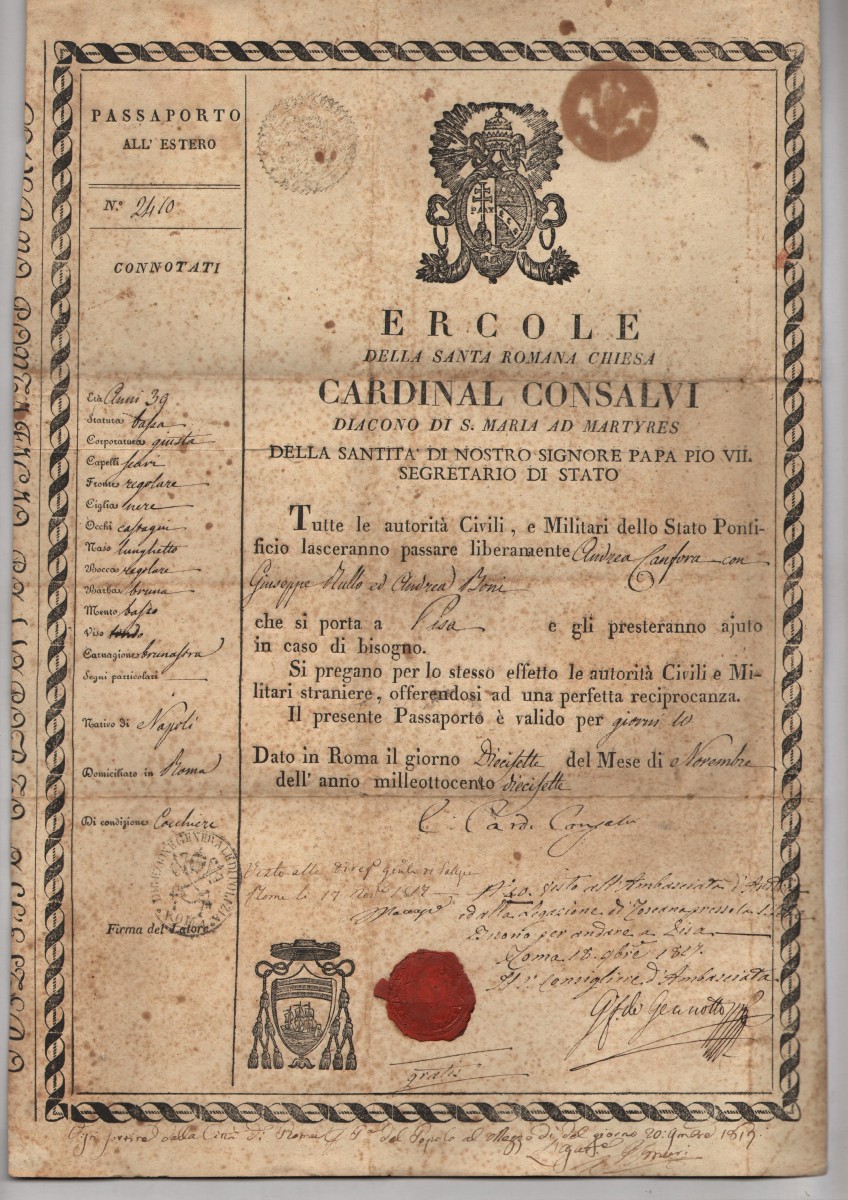 PASSAPORTO
ALL' ESTERO
N.° 2410
CONNOTATI
Età Anni 39
Statura bassa
Corporatura giusta
Capelli
Fronte regolare
Ciglia nere
Occhi castagni
Naso lunghetto
Bocca regolare
Barba bruna
Mento basso
Viso tondo
Carnagione brunastra
Segni particolari
Nativo di Napoli
Domiciliato in Roma
Di condizione Cocchiere
DIREZIONE GENERALE DI POLIZIA
ROMA
Firma del Latore
PAX
ERCOLE
DELLA SANTA ROMANA CHIESA
CARDINAL CONSALVI
DIACONO DI S. MARIA AD MARTYRES
DELLA SANTITA' DI NOSTRO SIGNORE PAPA PIO VII.
SEGRETARIO DI STATO
Tutte le autorità Civili, e Militari dello Stato Ponti-
ficio lasceranno passare liberamente Andrea Canfora con
Giuseppe Rullo ed Andrea Boni
che si porta a Pisa e gli presteranno ajuto
in caso di bisogno.
Si pregano per lo stesso effetto le autorità Civili e Mi-
litari straniere, offerendosi ad una perfetta reciprocanza.
Il presente Passaporto è valido per giorni 10
Dato in Roma il giorno Diecisette del Mese di Novembre
dell' anno milleottocento diecisette
E. Card. Consalvi
Visto alla Direz. Gnle di Polizia
Roma li 17 Nov. 1817
N° 40. Visto all'Ambasciata d'
ed alla Legazione di Toscana presso la S.
per andare a Pisa.
Roma 18. 9bre 1817.
Il Consigliere d'Ambasciata
G. de Gennotte
gratis
partire dalla Città di Roma Pa del Popolo al Mezzo dì del giorno 20: 9mbre 1817.